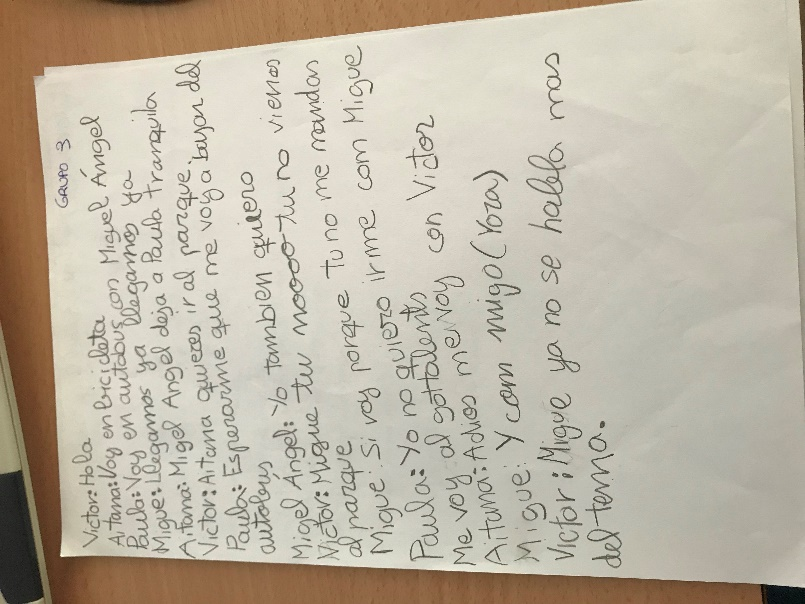 GRUPO 3
Victor: Hola
Aitana: Voy en bicicleta
Paula: Voy en autobus con Miguel Ángel
Migue: Llegamos ya llegamos ya
Aitana: Migel Angel deja a Paula tranquila
Victor: Aitana quieres ir al parque.
Paula: Esperarme que me voy a bajar del
autobús
Migel Ángel: Yo tambien quiero
Victor: Migue tu noooo tu no vienes
al parque
Migue: Si voy porque tu no me mandas
Paula: Yo no quiero irme com Migue
Me voy al gottalents
Aitana: Adios me voy con Victor
Migue: Y com migo (roza)
Victor: Migue ya no se habla mas
del tema.